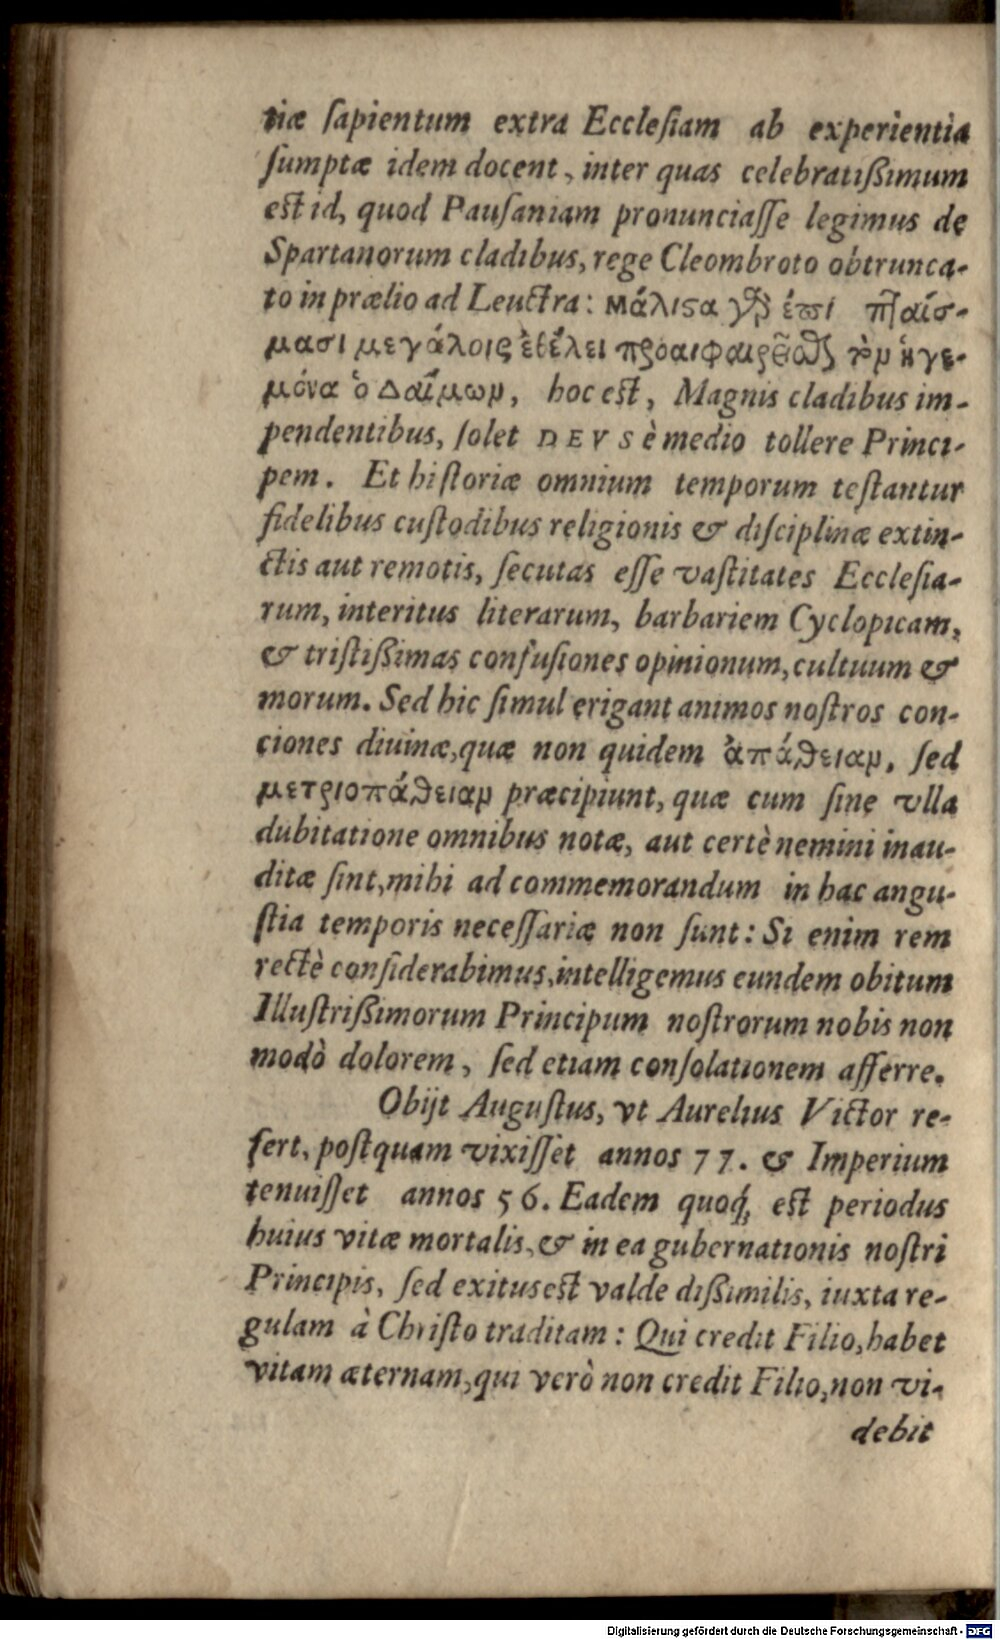 tiæ ſapientum extra Eccleſiam ab experientia
ſumptæ idem docent, inter quas celebratißimum
est id, quod Pauſaniam pronunciaſſe legimus de
Spartanorum cladibus, rege Cleombroto obtrunca-
to in prælio ad Leuctra: μάλιϛα γὰρ ἐπὶ πταίσ-
μασι μεγάλοις ἐθέλει προαιφαιρεῖσθαι τὸμ ἡγε-
μόνα ὁ Δαίμωμ, hoc est, Magnis cladibus im-
pendentibus, ſolet DEVS è medio tollere Princi-
pem. Et hiſtoriæ omnium temporum teſtantur
fidelibus cuſtodibus religionis & diſciplinæ extin-
ctis aut remotis, ſecutas eſſe vaſtitates Eccleſia-
rum, interitus literarum, barbariem Cyclopicam,
& triſtißimas confuſiones opinionum, cultuum &
morum. Sed hic ſimul erigant animos noſtros con-
ciones diuinæ, quæ non quidem ἀπάθειαμ, ſed
μετριοπάθειαμ præcipiunt, quæ cum ſine vlla
dubitatione omnibus notæ, aut certè nemini inau-
ditæ ſint, mihi ad commemorandum in hac angu-
ſtia temporis neceſſariæ non ſunt: Si enim rem
rectè conſiderabimus, intelligemus eundem obitum
Illuſtrißimorum Principum noſtrorum nobis non
modò dolorem, ſed etiam conſolationem afferre.
Obijt Auguſtus, vt Aurelius Victor re-
fert, poſtquam vixiſſet annos 77. & Imperium
tenuiſſet annos 56. Eadem quoq́; est periodus
huius vitæ mortalis, & in ea gubernationis noſtri
Principis, ſed exitus est valde dißimilis, iuxta re-
gulam à Chriſto traditam: Qui credit Filio, habet
vitam æternam, qui verò non credit Filio, non vi-
debit
Digitalisierung gefördert durch die Deutsche Forschungsgemeinschaft - DFG